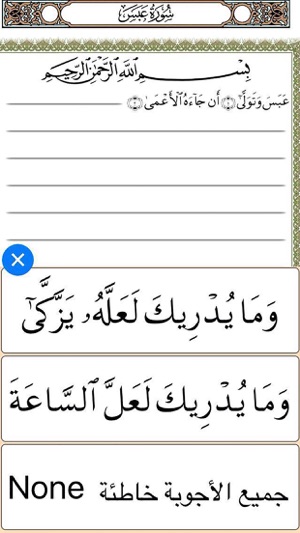 سُورَةُ عَبَسَ
بِسْمِ ٱللَّهِ ٱلرَّحْمَٰنِ ٱلرَّحِيمِ
عَبَسَ وَتَوَلَّىٰٓ ١ أَن جَآءَهُ ٱلْأَعْمَىٰ ٢
وَمَا يُدْرِيكَ لَعَلَّهُۥ يَزَّكَّىٰٓ
وَمَا يُدْرِيكَ لَعَلَّ ٱلسَّاعَةَ
جميع الأجوبة خاطئة None